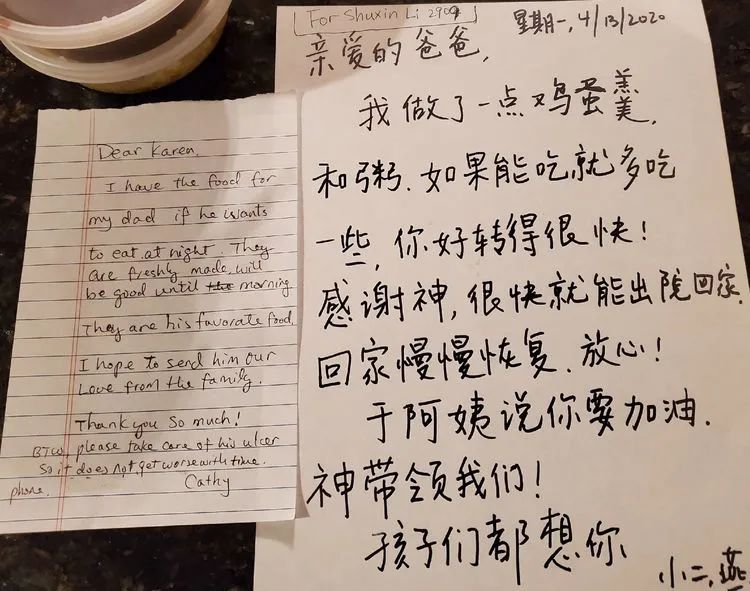 Dear Karen,
I have the food for
my dad if he wants
to eat at night. They
are freshly made, will
be good until the morning
They are his favorate food.
I hope to send him our
Love from the family.
Thank you so much!
BTW, please take care of his ulcer
so it does not get worse with time.
phone.
Cathy
For Shuxin Li 2909
星期一, 4/13/2020
亲爱的爸爸,
我做了一点鸡蛋羹,
和粥. 如果能吃就多吃
一些, 你好转得很快!
感谢神, 很快就能出院回家.
回家慢慢恢复. 放心!
于阿姨说你要加油.
神带领我们!
孩子们都想你
小二, 燕